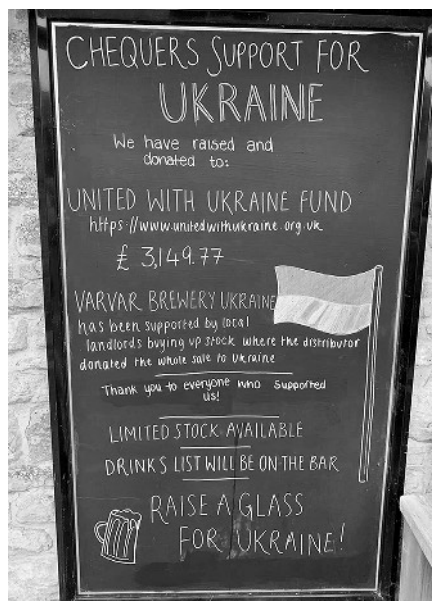 CHEQUERS SUPPORT FOR
UKRAINE
We have raised and
donated to:
UNITED WITH UKRAINE FUND
https://www.unitedwithukraine.org.uk
£ 3,149.77
VARVAR BREWERY UKRAINE
has been supported by local
landlords buying up stock where the distributor
donated the whole sale to Ukraine
Thank you to everyone who supported
us!
LIMITED STOCK AVAILABLE
DRINKS LIST WILL BE ON THE BAR
RAISE A GLASS
FOR UKRAINE!